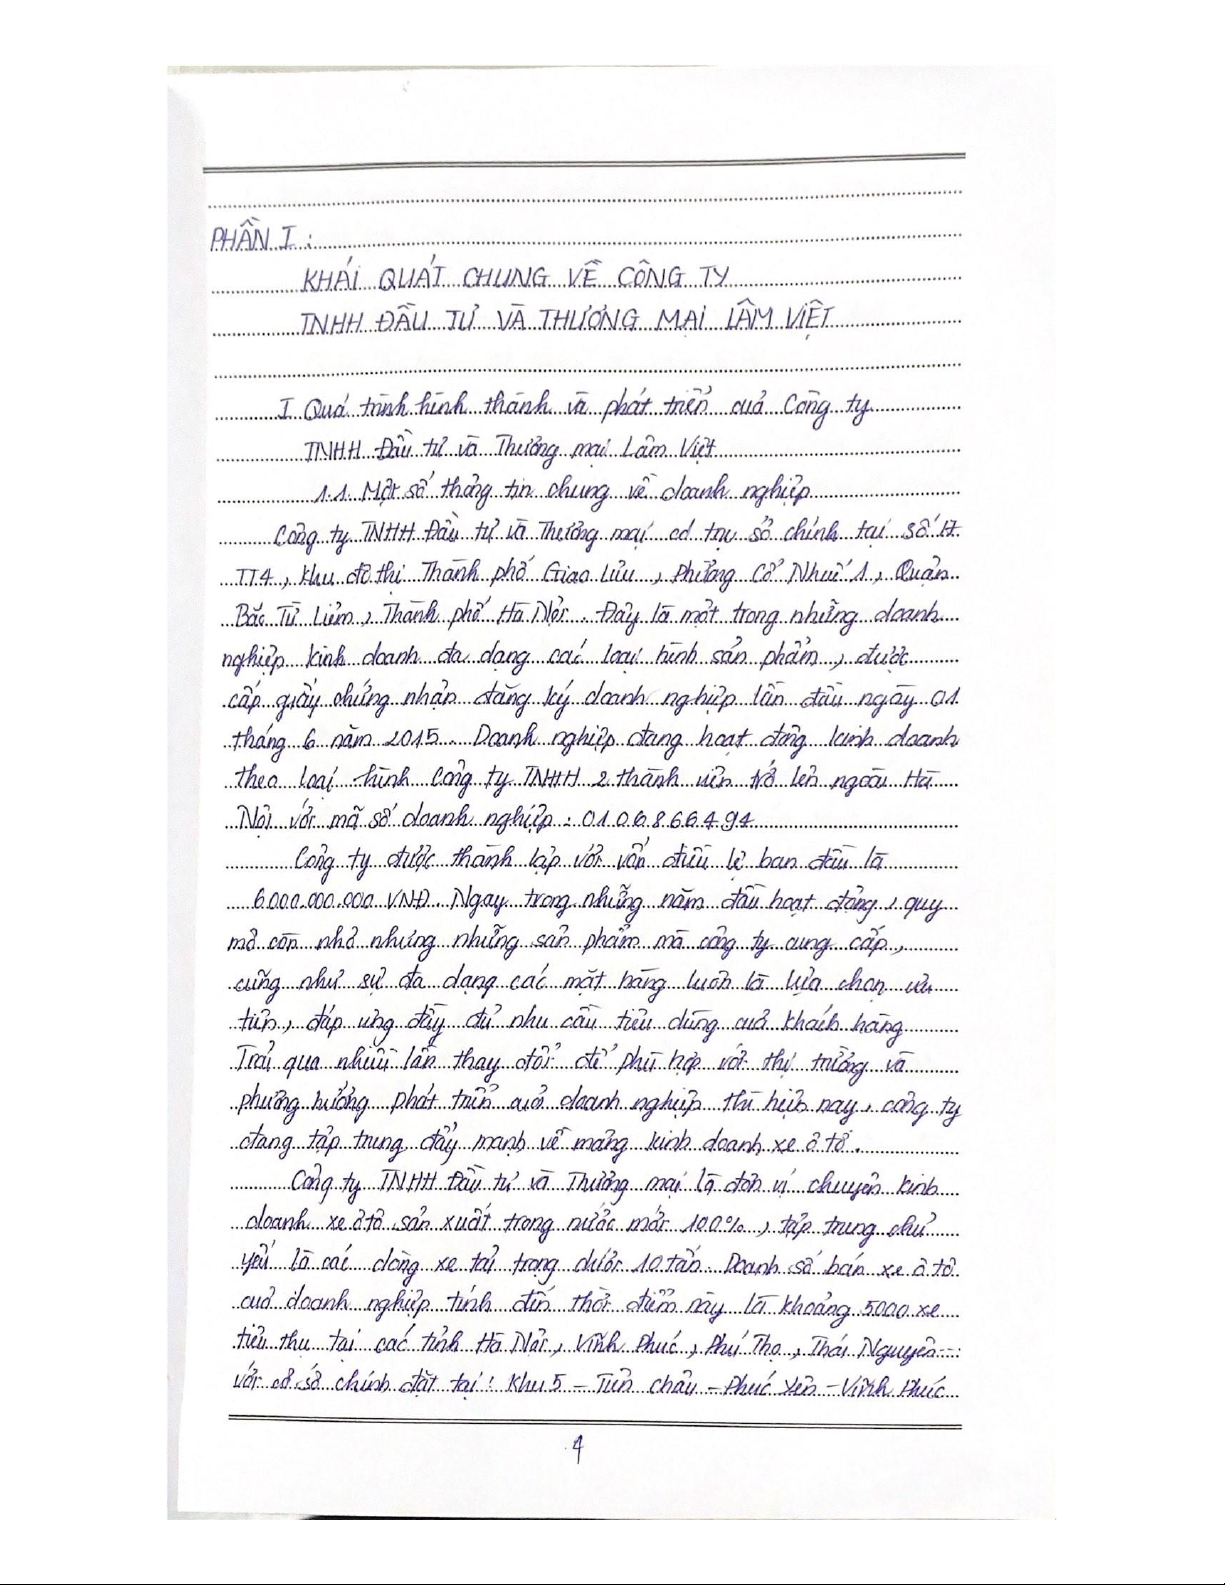 PHẦN I :
KHÁI QUÁT CHUNG VỀ CÔNG TY
TNHH ĐẦU TƯ VÀ THƯƠNG MẠI LÂM VIỆT
I. Quá trình hình thành và phát triển của Công ty
TNHH Đầu tư và Thương mại Lâm Việt
1.1. Một số thông tin chung về doanh nghiệp
Công ty TNHH Đầu tư và Thương mại có trụ sở chính tại số
TT4, Khu đô thị Thành phố Giao lưu, Phường Cổ Nhuế 1, Quận
Bắc Từ Liêm, Thành phố Hà Nội. Đây là một trong những doanh
nghiệp kinh doanh đa dạng các loại hình sản phẩm, được
cấp giấy chứng nhận đăng ký doanh nghiệp lần đầu ngày 01
tháng 6 năm 2015. Doanh nghiệp đang hoạt động kinh doanh
theo loại hình Công ty TNHH 2 thành viên trở lên ngoài Hà
Nội với mã số doanh nghiệp : 0106866494
Công ty được thành lập với vốn điều lệ ban đầu là
6.000.000.000 VNĐ. Ngay trong những năm đầu hoạt động, quy
mô còn nhỏ nhưng những sản phẩm mà công ty cung cấp,
cũng như sự đa dạng các mặt hàng luôn là lựa chọn ưu
tiên, đáp ứng đầy đủ nhu cầu tiêu dùng của khách hàng
Trải qua nhiều lần thay đổi để phù hợp với thị trường và
phương hướng phát triển của doanh nghiệp thì hiện nay, công ty
đang tập trung đẩy mạnh về mảng kinh doanh xe ô tô.
Công ty TNHH Đầu tư và Thương mại là đơn vị chuyên kinh
doanh xe ô tô sản xuất trong nước mới 100%, tập trung chủ
yếu là các dòng xe tải trọng dưới 10 tấn. Doanh số bán xe ô tô
của doanh nghiệp tính đến thời điểm này là khoảng 5000 xe
tiêu thụ tại các tỉnh Hà Nội, Vĩnh Phúc, Phú Thọ, Thái Nguyên...
với cơ sở chính đặt tại : Khu 5 - Tiền Châu - Phúc Yên - Vĩnh Phúc
4